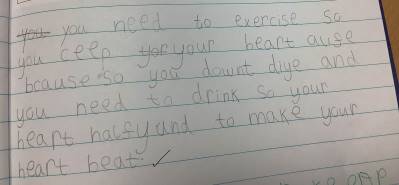 you you need to exercise so
you ceep yor your heart aulse
bcause so you downt diye and
you need to drink so your
heart halfy und to make your
heart beat.